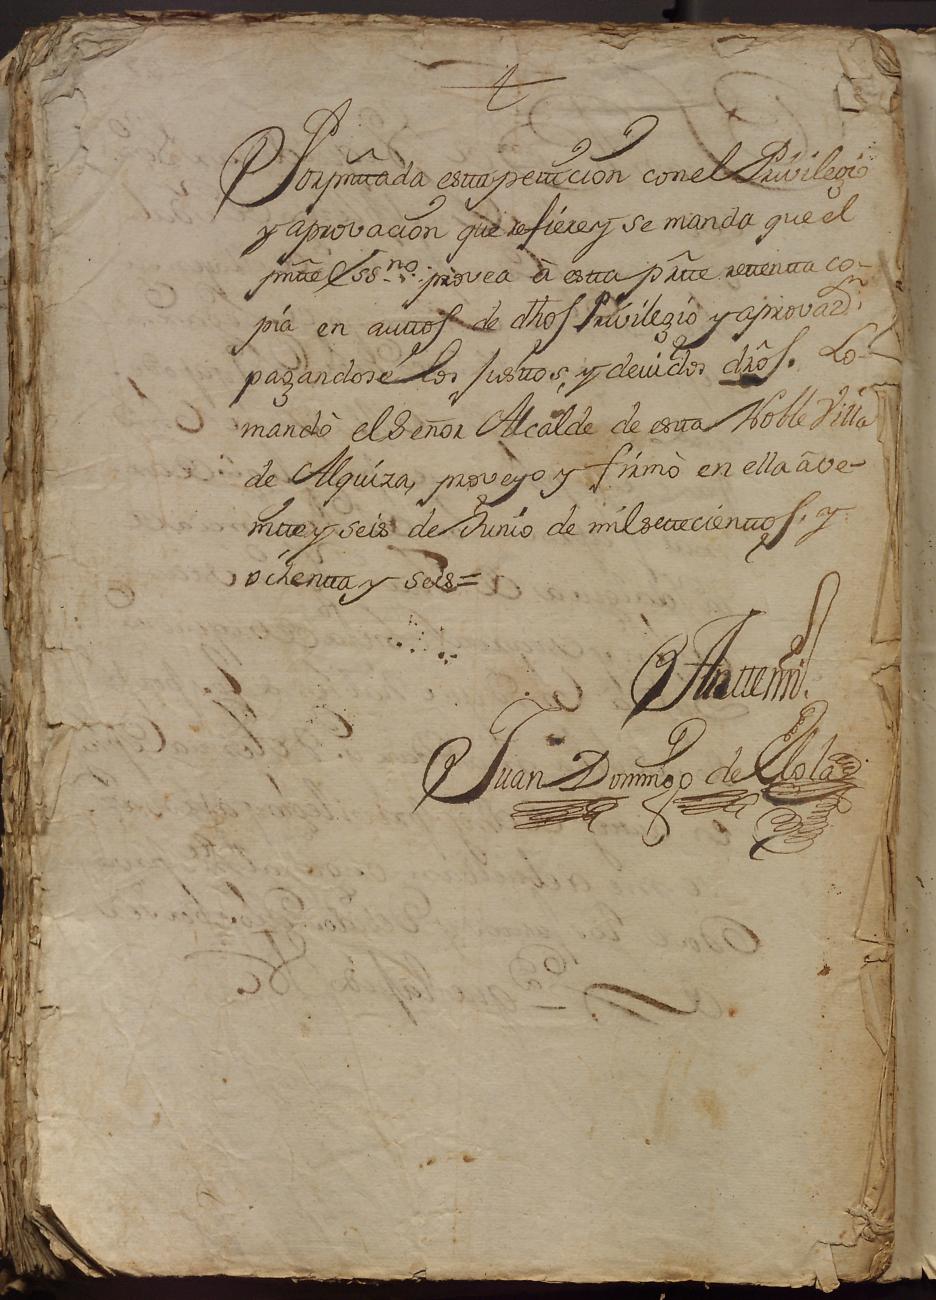 Por pntada esta peticion con el Privilegio
y aprovacion que refiere y se manda que el
pnte Essno. provea â esta pnte retenta co-
pia en auttos de dhos Privilegio y aprovazn.
pagandose los justtos, y devidos dhôs. Lo
mandò el Señor Alcalde de esta Noble Villa
de Alquiza, proveyo y firmò en ella â ve-
intte y seis de Junio de mil settecienttos, y
ochenta y seis=
Antte mi
Juan Domingo de Elola